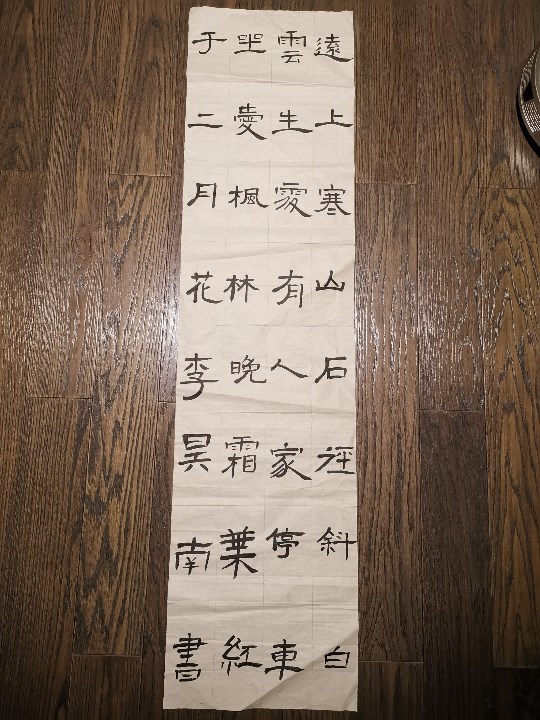 遠上寒山石徑斜白
雲生處有人家停車
坐愛楓林晚霜葉紅
于二月花李昊南書